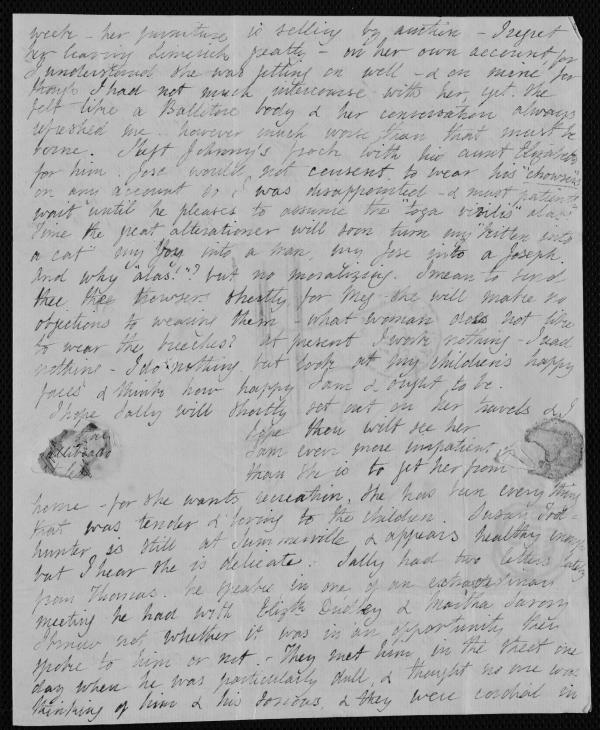 week - her furniture is selling by auction - I regret
her leaving Limerick greatly - on her own account for
I understand she was getting on well - & on mine for
though I had not much intercourse with her, yet she
felt like a Ballitore body & her conversation always
refreshed me - however much worse than that must be
borne. I left Johnny's frock with his aunt Elizabeth
for him. Jose would not consent to wear his "
on any account so I was disappointed - & must patiently
wait until he pleases to assume the "toga virilis" alas!
Time the great alterationer will soon turn my "kitten into
a cat" my Boy into a man, my Jose into a Joseph.
And why "alas!"? but no moralizing. I mean to send
thee the trowsers shortly for Meg - she will make no
objections to wearing them - what woman does not like
to wear the breeches? At present I work nothing - I read
nothing - I do nothing but look at my children's happy
faces & think how happy I am & ought to be.
I hope Sally will shortly set out on her travels & I
hope thou wilt see her
I am even more impatient
than she is to get her from
home - for she wants recreation, she has been everything
that was tender & loving to the children. Susan Tod-
hunter is still at Summerville & appears healthy enough
but I hear she is delicate. Sally had two letters lately
from Thomas. he speaks in one of an extraordinary
meeting he had with Elizth Dudley & Martha Savory
I know not whether it was in an opportunity they
spoke to him or not - They met him in the street one
day when he was particularly dull, & thought no one was
thinking of him & his sorrows, & they were cordial in